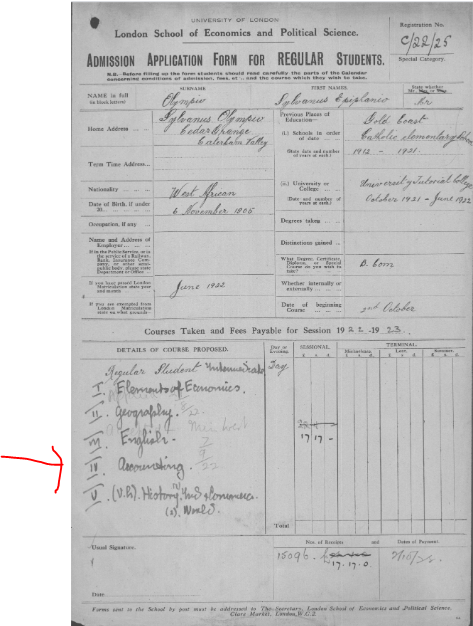 UNIVERSITY OF LONDON
London School of Economics and Political Science.
Registration No.
C/22/25
ADMISSION APPLICATION FORM FOR REGULAR STUDENTS.
Special Category.
N.B.–Before filling on the form students should read carefully the parts of the Calendar
concerning conditions of admission, fees, etc., and the course which they wish to take.
SURNAME
FIRST NAMES
State whether
NAME in full
(in block letters)
Olympio
Sylvanus Epiphanio
Mr
Home Address
Sylvanus Olympio
Cedar Grange
Caterham Valley
Previous Places of
Education—
(i.) Schools in order
of date
(State date and number
of years at each)
Gold Coast
Catholic elementary
1912 - 1921.
Term Time Address
Nationality
West African
(ii.) University or
College
(Date and number of
years at each)
University Tutorial College
October 1921 - June 1922
Date of Birth, if under
21
6 November 1905
Occupation, if any
Degrees taking
Name and Address of
Employer
Distinctions gained
If in the Public Service, or in
the service of a Railway,
Bank, Insurance Com-
pany, or other semi-
public body, please state
Department or Office
What Degree, Certificate,
Diploma, or Special
Course do you wish to
take?
B. Com
If you have passed London
Matriculation state year
and month
June 1922
Whether internally or
externally
If you are exempted from
London Matriculation
state on what grounds
Date of beginning
Course
2nd October
Courses Taken and Fees Payable for Session 1922-1923.
DETAILS OF COURSE PROPOSED.
Day or
Evening.
SESSIONAL
TERMINAL.
Michaelmas
Lent
Summer.
£ s d
Regular Student
Day
I. Elements of Economics.
II. Geography.
III. English.
17 17 -
IV. Accounting.
V. (v.b). History
(2). World.
Total
Usual Signature.
Nos. of Receipts and Dates of Payment.
15096
17.17.0
Date
Forms sent to the School by post must be addressed to The Secretary, London School of Economics and Political Science,
Clare Market, London, W.C.2.